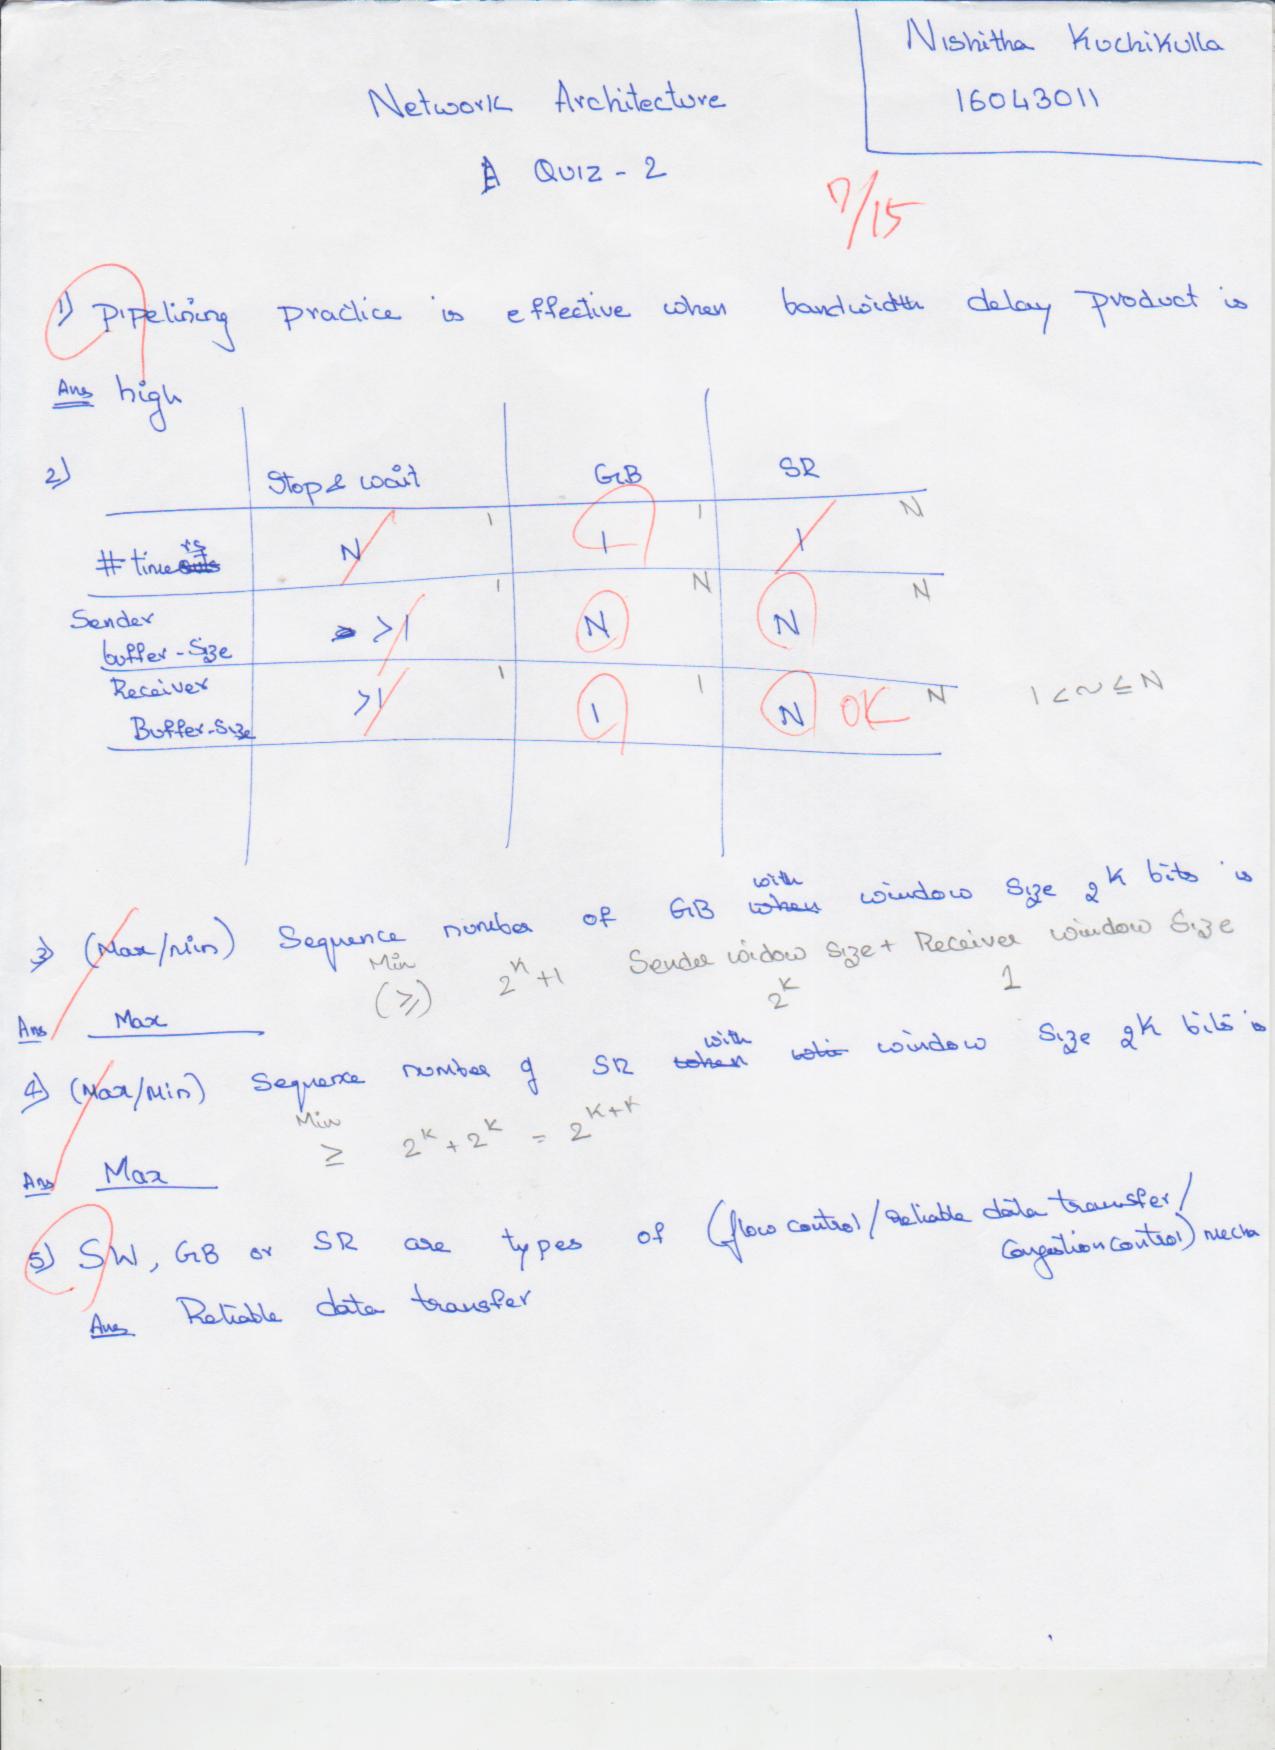 Nishitha Kuchikulla
16043011
Network Architecture
QUIZ - 2
7/15
1) Pipelining practice is effective when bandwidth delay product is
Ans high
2) Stop & wait GB SR
# timers N 1 1 1 1 N
Sender buffer-Size >1 1 N N N N
Receiver Buffer-Size >1 1 1 1 N OK N 1 < ~ ≤ N
3) (Max/Min) Sequence number of GB with window Size 2^K bits is
Min (≥) 2^K+1 Sender widow Size + Receiver window Size
2^K 1
Ans Max
4) (Max/Min) Sequence number of SR with window Size 2^K bits is
Min ≥ 2^K + 2^K = 2^K+K
Ans Max
5) SW, GB or SR are types of (flow control/reliable data transfer/
Congestion control) mecha
Ans Reliable data transfer